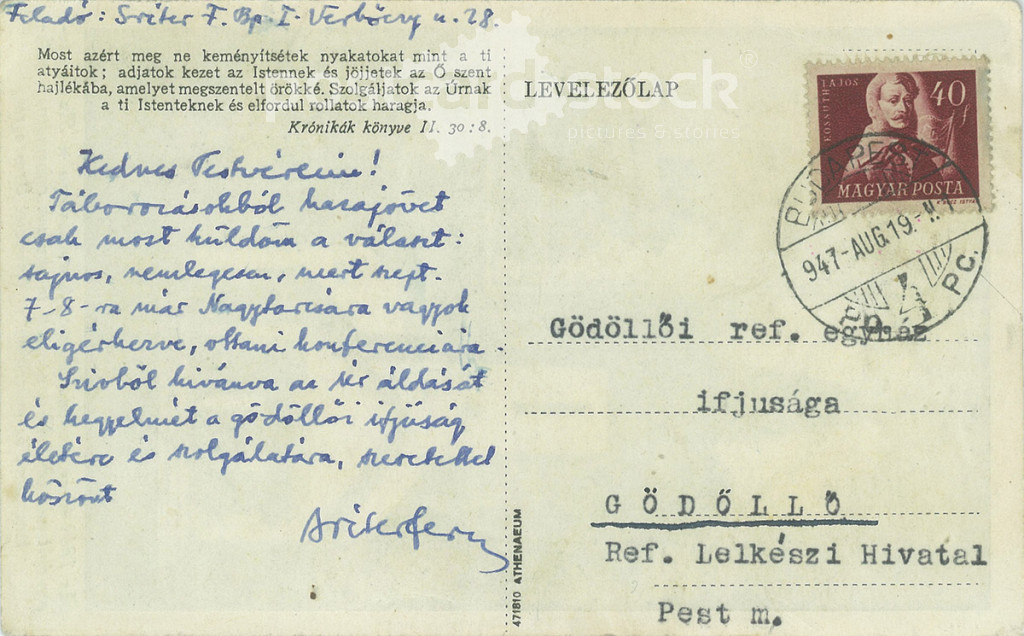 Feladó: Sréter F. Bp. I. Verbőczy u. 28.
Most azért meg ne keményítsétek nyakatokat mint a ti
atyáitok; adjatok kezet az Istennek és jöjjetek az Ő szent
hajlékába, amelyet megszentelt örökké. Szolgáljatok az Úrnak
a ti Isteneteknek és elfordul rollatok haragja.
Krónikák könyve II. 30:8.
Kedves Testvéreim!
Táborozásokból hazajövet
csak most küldöm a választ:
sajnos, nemlegesen, mert szept.
7-8-ra már Nagytarcsára vagyok
eligérkezve, ottani konferenciára.
Szivből kivánva az Úr áldását
és kegyelmét a gödöllői ifjúság
életére és szolgálatára, szeretettel
köszönt
Sréter Ferenc
LEVELEZŐLAP
stock
pictures & stories
KOSSUTH LAJOS
40 f
MAGYAR POSTA
BUDAPEST
947-AUG.19.
4
P.C.
Gödöllői ref. egyház
ifjusága
GÖDÖLLŐ
Ref. Lelkészi Hivatal
Pest m.
471810 ATHENAEUM